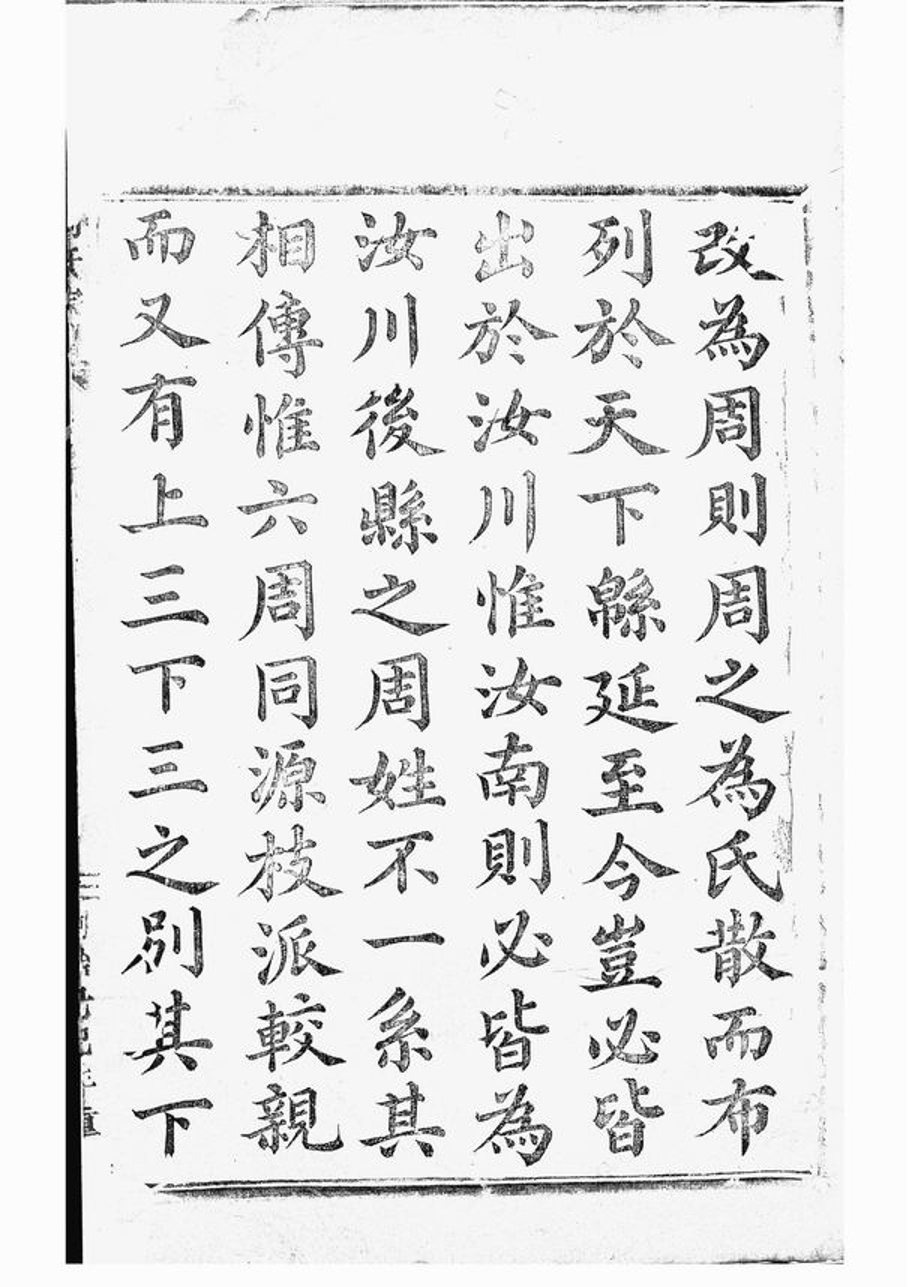 改為周則周之為氏散而布
列於天下緜延至今豈必皆
出於汝川惟汝南則必皆為
汝川後縣之周姓不一系其
相傳惟六周同源枝派較親
而又有上三下三之別其下